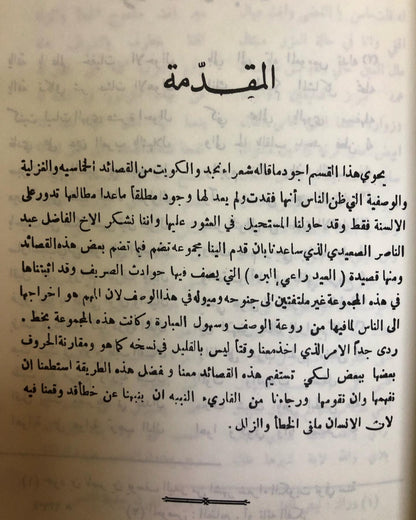 المقدّمة
يحوي هذا القسم اجود ما قاله شعراء نجد والكويت من القصائد الحماسيه والغزلية
والوصفية التي ظن الناس أنها فقدت ولم يعد لها وجود مطلقاً ماعدا مطالعها تدور على
الالسنة فقط وقد حاولنا المستحيل في العثور عليها واننا نشكر الاخ الفاضل عبد
الناصر الصعيدي الذي ساعدنا بان قدم الينا مجموعه تضم فيما تضم بعض هذه القصائد
ومنها قصيدة ( العبد راعي البره ) التي يصف فيها حوادث الصريف وقد اثبتناها
في هذه المجموعة غير ملتفتين الى جنوحه وميوله في هذا الوصف لان المهم هو اخراجها
الى الناس لما فيها من روعة الوصف وسهول العبارة وكانت هذه المجموعة بخط .
ردى جداً الامر الذي اخذ معنا وقتاً ليس بالقليل في نسخه كما هو ومقارنة الحروف
بعضها ببعض لكي تستقيم هذه القصائد معنا وفضل هذه الطريقة استطعنا ان
نفهمها وان نقومها ورجاءنا من القاريء النبيه ان ينبهنا عن خطأ قد وقعنا فيه
لان الانسان مافى الخطأ والزلل .